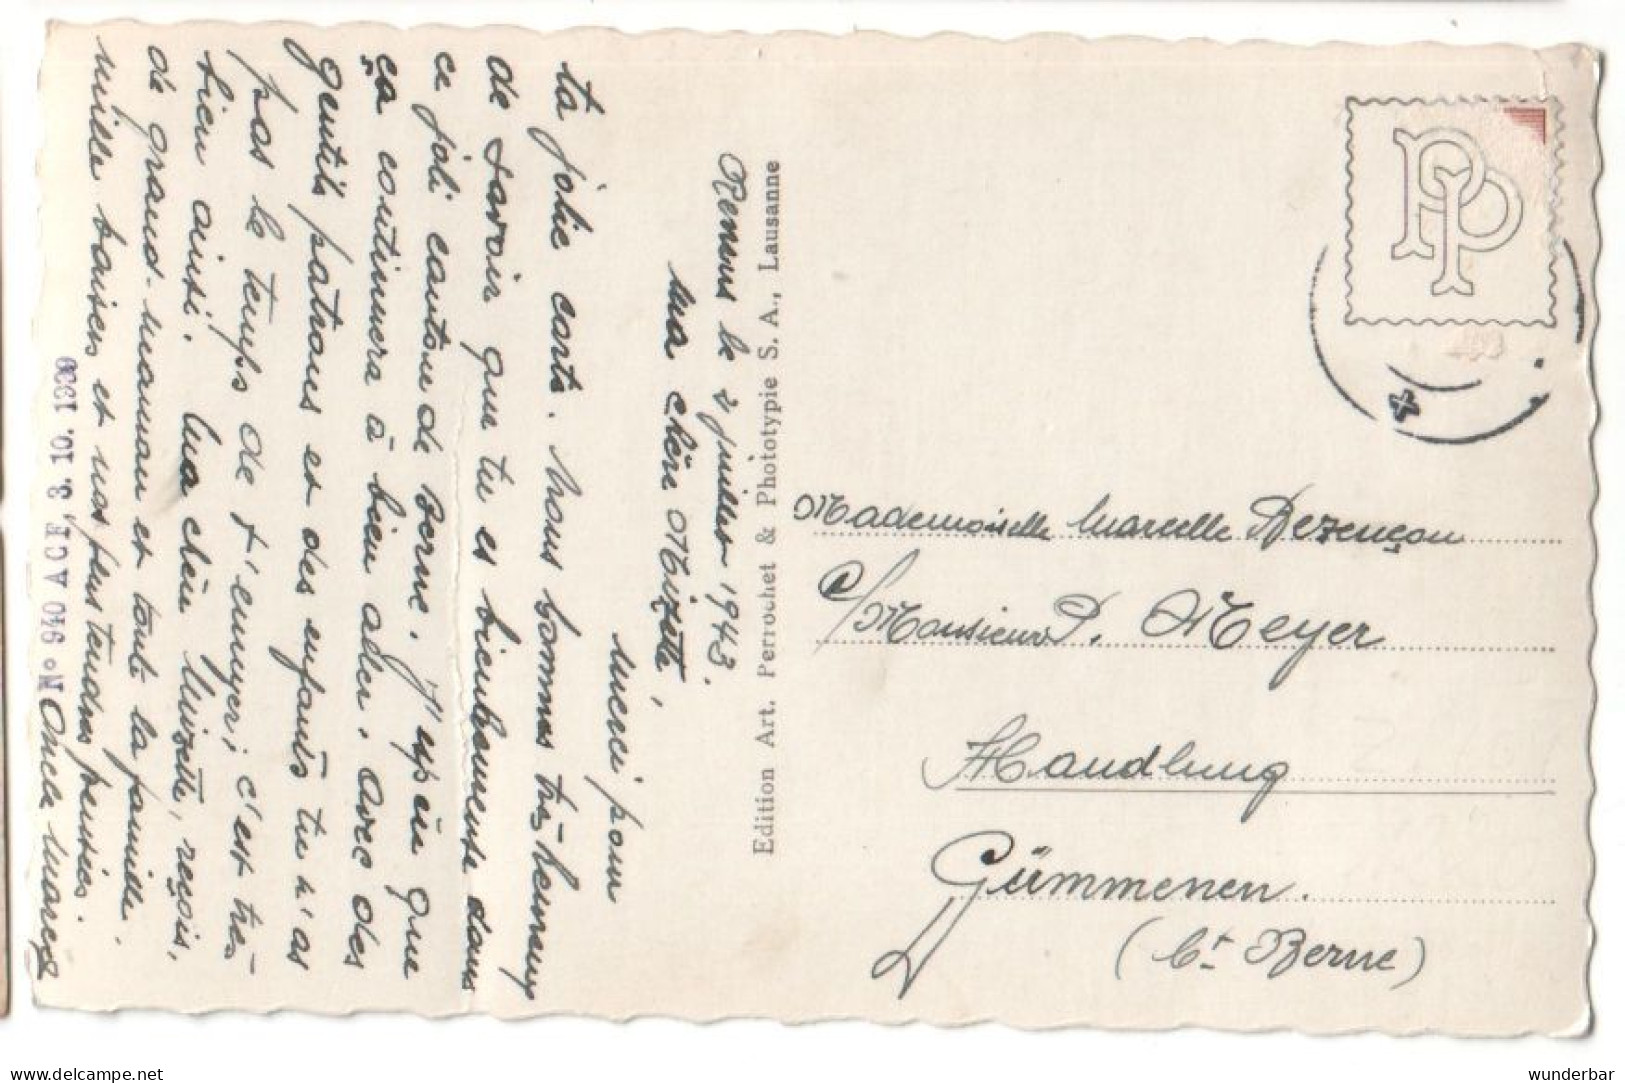 Renens le 2 juillet 1943.
Ma chère Mizette,
Merci pour
ta jolie carte. Nous sommes très heureux
de savoir que tu es bienheureuse dans
ce joli canton de Berne. J'espère que
ça continuera à bien aller. Avec des
gentils patrons et des enfants tu n'as
pas le temps de t'ennuyer; c'est très
bien ainsi. Ma chère Mizette, reçois,
de grand-maman et toute la famille.
mille baisers et nos plus tendres pensées.
Oncle Marcel
N° 940 A C F, 3. 10. 1939
Edition Art. Perrochet & Phototypie S. A., Lausanne
PPI
Mademoiselle Marcelle Bezençon
c/ Monsieur P. Meyer
Handlung
Gümmenen.
(Ct Berne)
www.delcampe.net
wunderbar